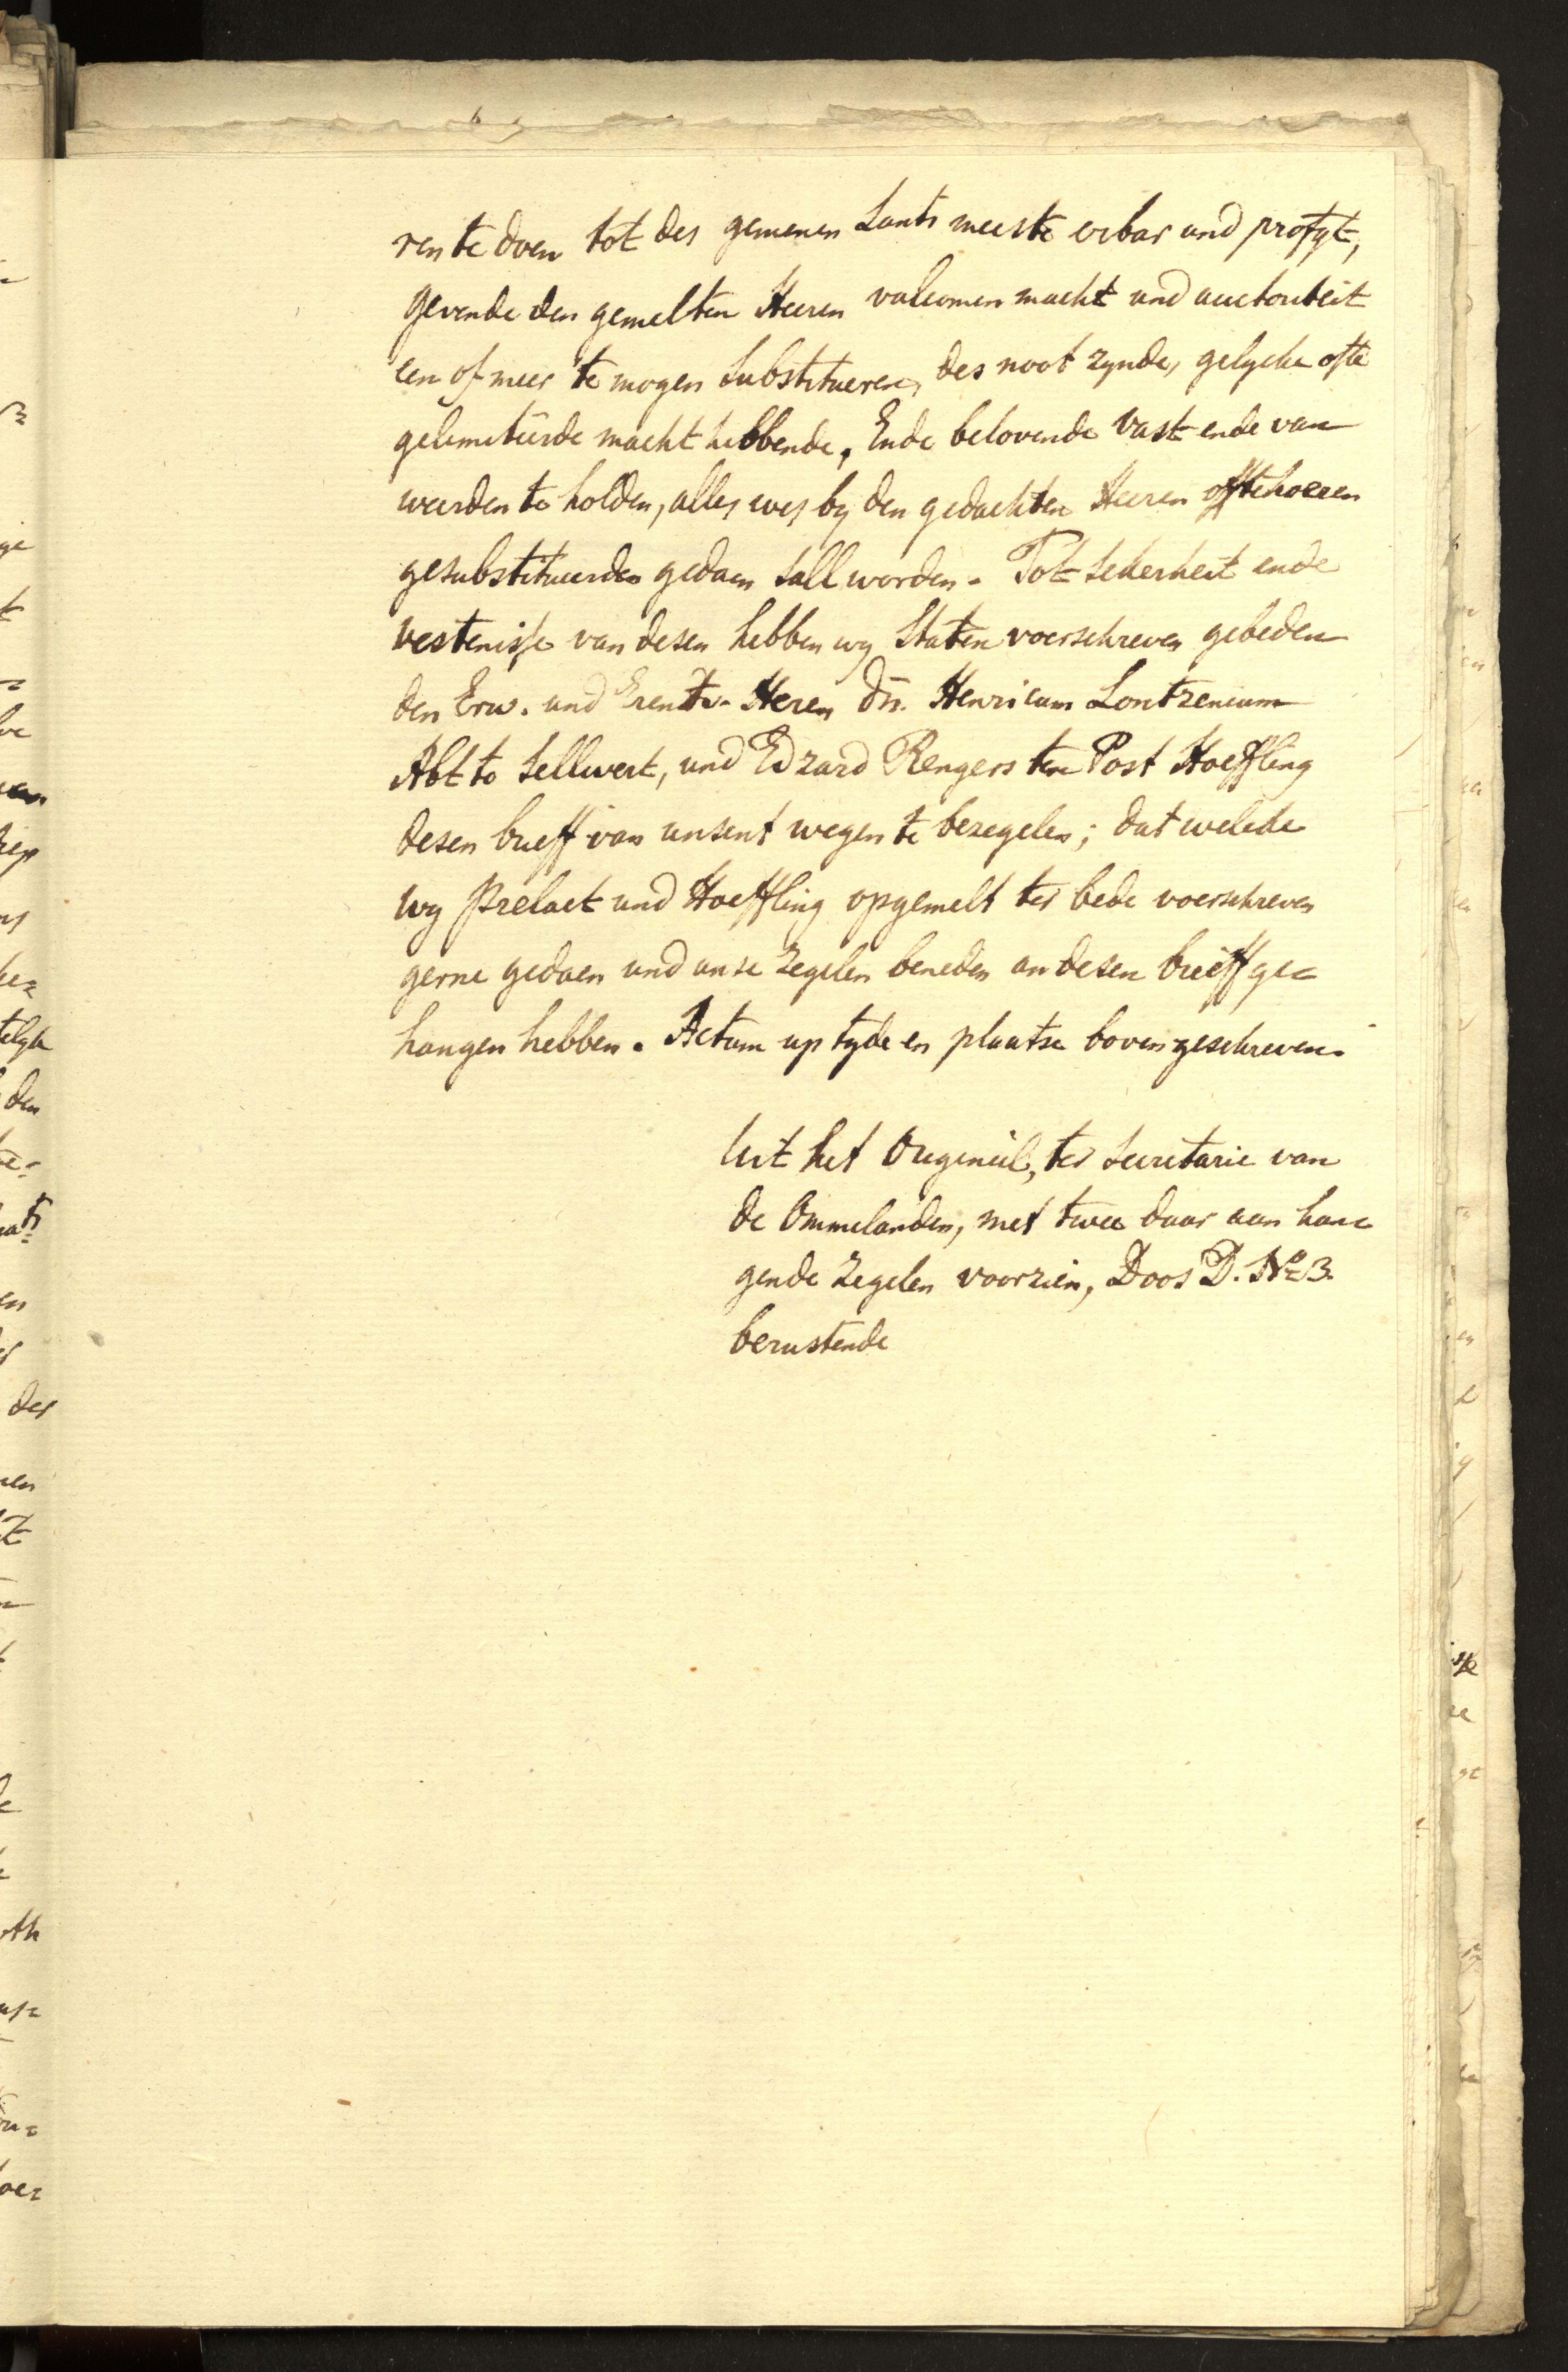 ren te doen tot des gemenen Lants meeste orbar und profyt,
gevende den gemelten Heeren volcomen macht und auctoriteit
een of meer te mogen substitueren, des noot zynde, gelycke ofte
gelimitierde macht hebbende, Ende belovende vast ende van
weerden te holden, alles wes by den gedachten Heeren ofte hoeren
gesubstitueerden gedaen sall worden. Tot sekerheit ende
vestenisse van desen hebben wy Staten voerschreven gebeden
den Erw. und Erentv. Heren dn. Henricum Lontzenium
Abt to Sellwert, und Edzard Rengers ten Post Hoeffling
desen brieff van unsent wegen te bezegelen; dat welcke
wy Prelaet und Hoeffling opgemelt ter bede voerschreven
gerne gedaen und unse zegelen beneden an desen brieff ge=
hangen hebben. Actum up tyde en plaatse bovengeschreven.
Uit het Origineel, ter Secretarie van
de Ommelanden, met twee daar aan han=
gende zegelen voorzien, Doos D. No 3.
berustende